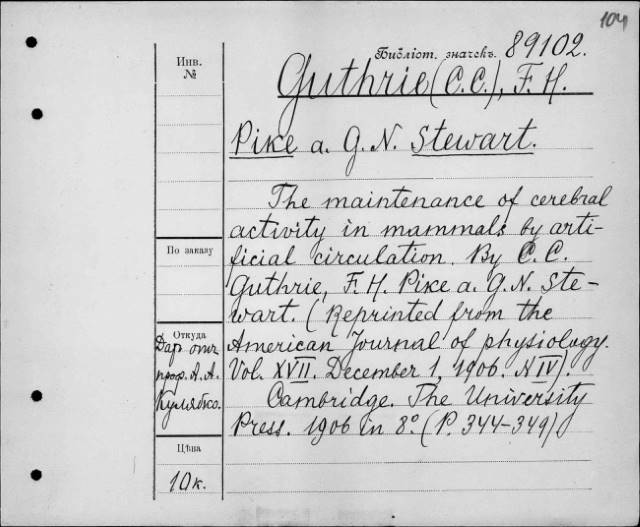 104
Библіот. значекъ 89102.
Инв.
№
Guthrie (C.C.), F. H.
Pike a. G. N. Stewart.
The maintenance of cerebral
activity in mammals by arti-
ficial circulation. By C. C.
Guthrie, F. H. Pike a. G. N. Ste-
wart. (Reprinted from the
American Journal of physiology.
Vol. XVII. December 1, 1906. N IV).
Cambridge. The University
Press. 1906 in 8º. (P. 344-349).
По заказу
Откуда
Дар отъ
проф. А. А.
Кулябко.
Цѣна
10 к.